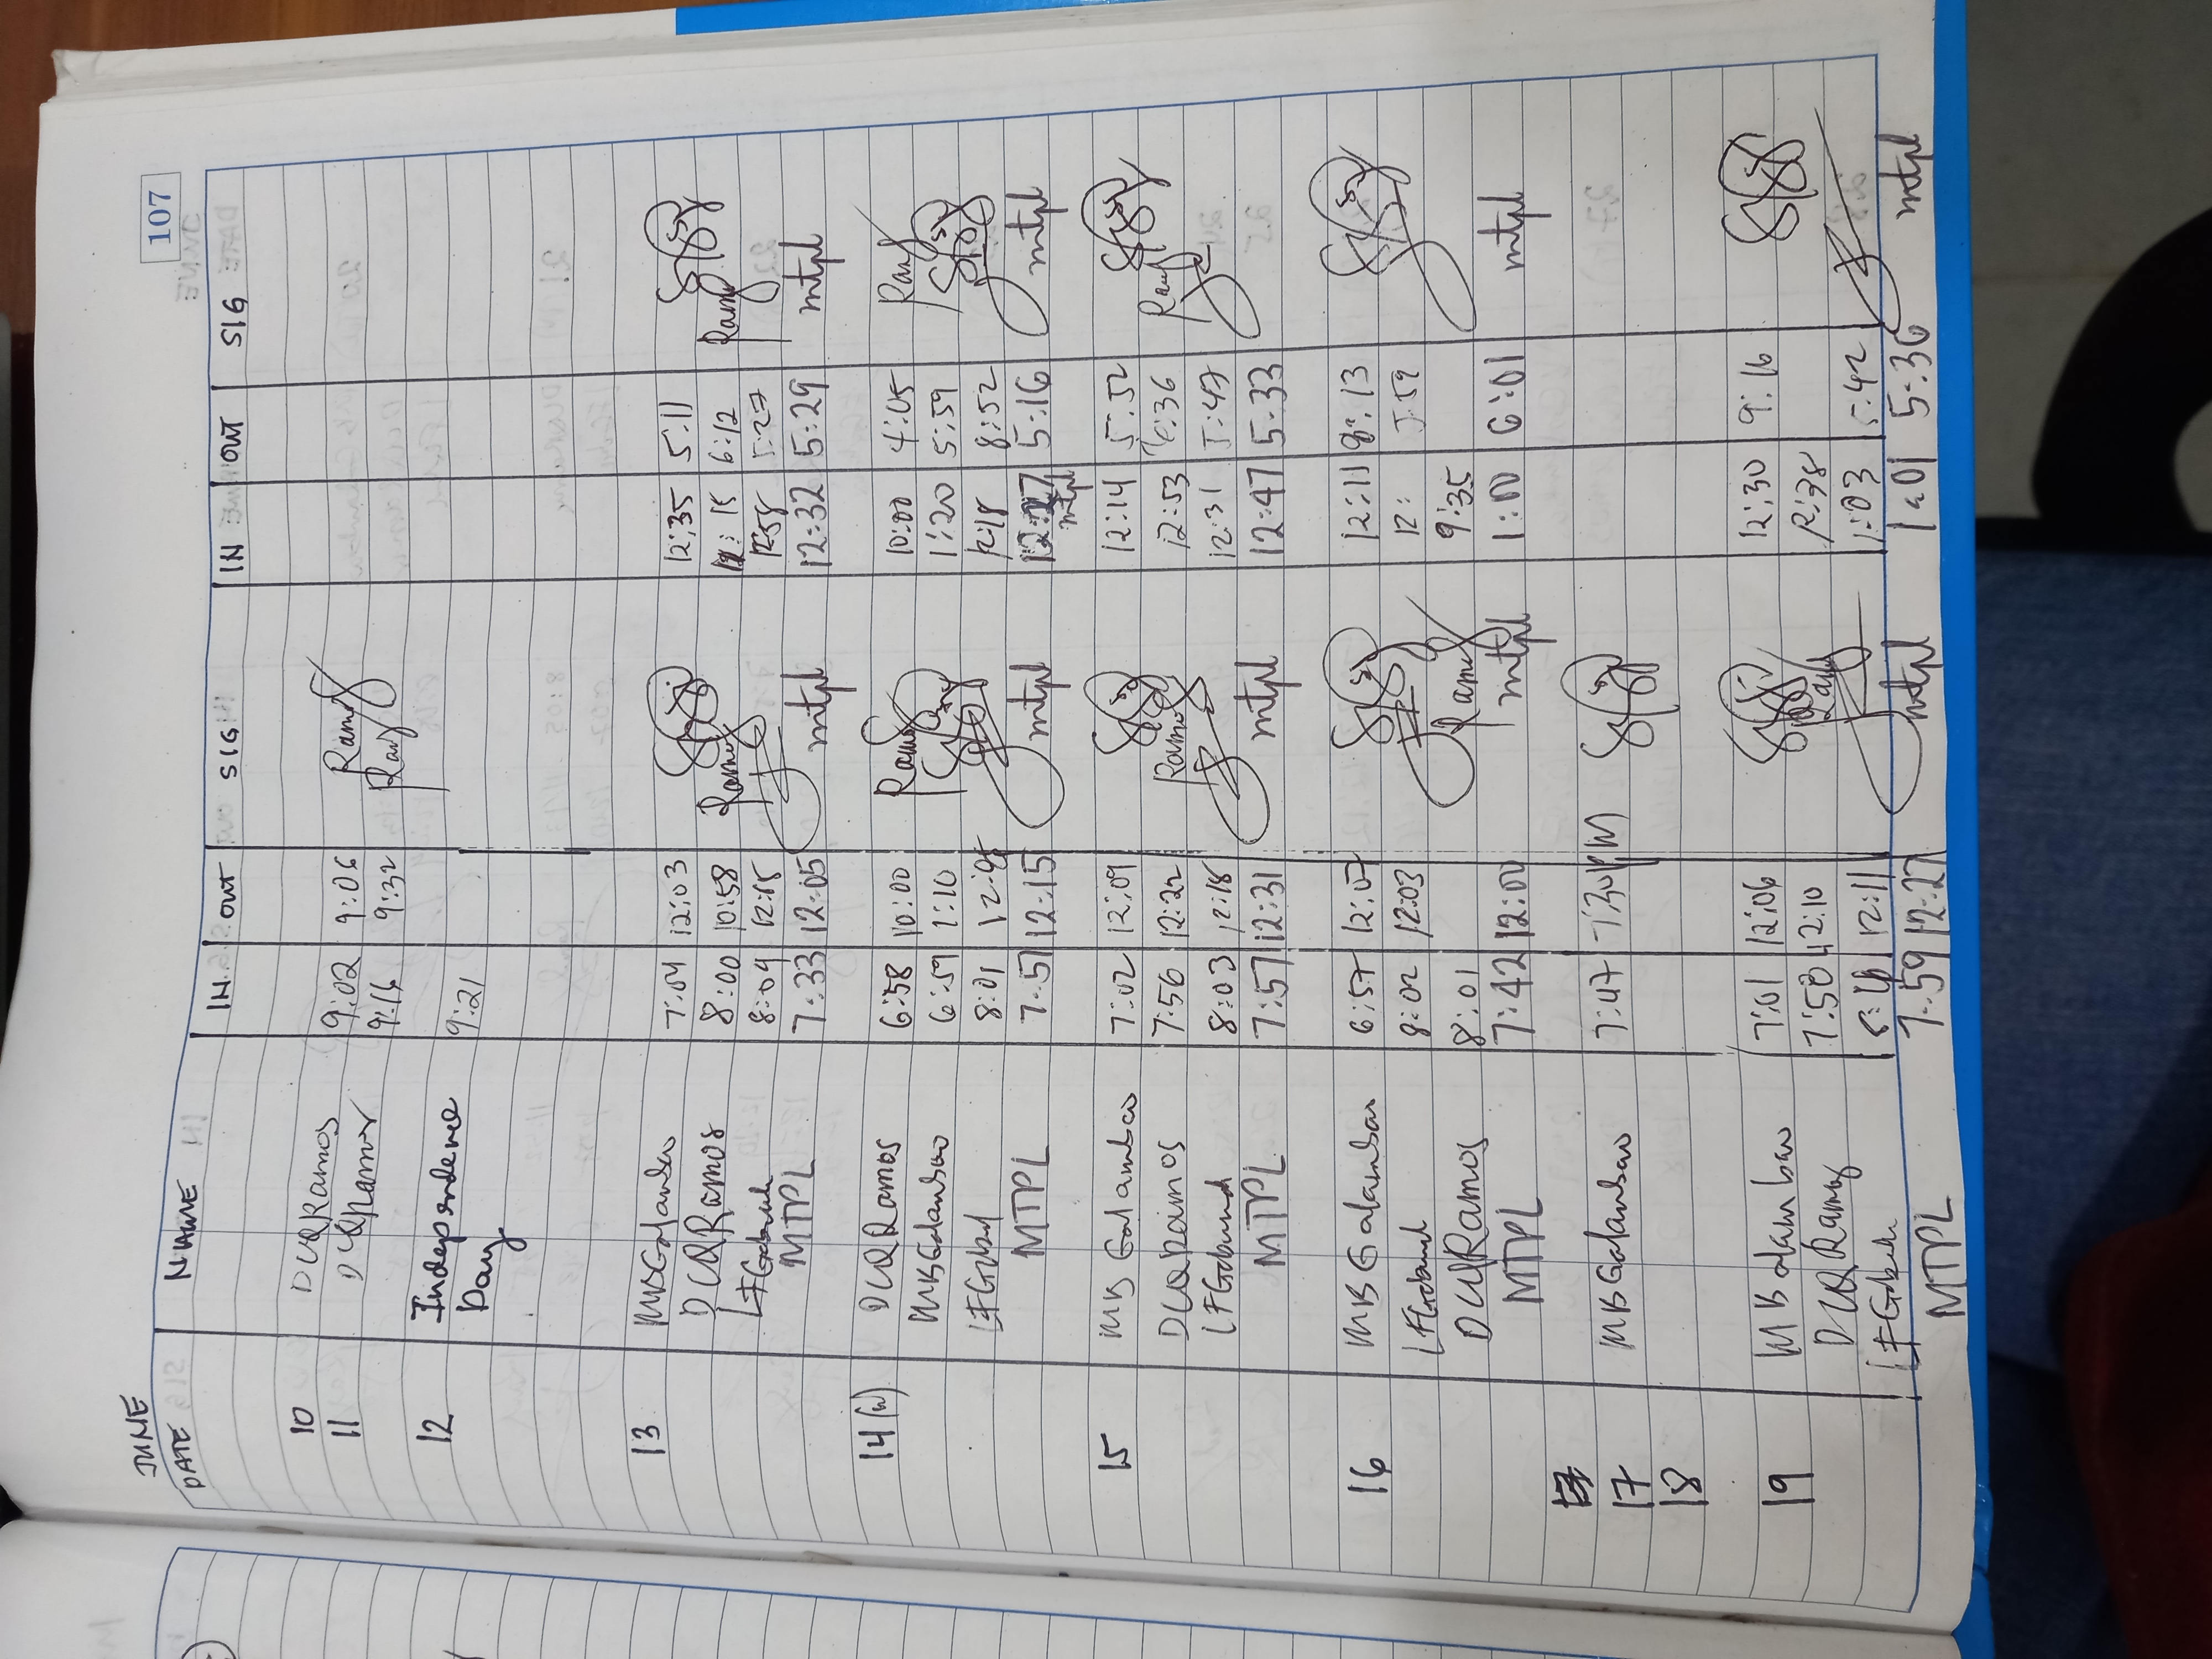 107
JUNE
DATE NAME IN OUT SIG IN OUT SIG
10 DCQRamos 9:02 9:06 Ramos
11 DCQRamos 9:16 9:32 Ramos
12 Independence 9:21
Day
13 MBGalambao 7:04 12:03 12:35 5:11
DCQRamos 8:00 10:58 6:12 Ramos
LFGabund 8:04 12:15 12:58 5:27
MTPL 7:33 12:05 mtpl 12:32 5:29 mtpl
14(W) DCQRamos 6:58 10:00 Ramos 10:00 4:05 Ramos
MBGalambao 6:59 1:10 1:20 5:59
LFGabund 8:01 12:18 8:52
MTPL 7:51 12:15 mtpl 12:27 mtpl 5:16 mtpl
15 MBGalambao 7:02 12:09 12:14 5:52
DCQRamos 7:56 12:22 Ramos 12:53 6:36 Ramos
LFGabund 8:03 12:18 12:31 5:47
MTPL 7:57 12:31 mtpl 12:47 5:33 mtpl
16 MBGalambao 6:57 12:07 12:11 8:13
LFGabund 8:02 12:03 12: 5:59
DCQRamos 8:01 Ramos 9:35
MTPL 7:42 12:00 mtpl 1:00 6:01 mtpl
17 MBGalambao 7:47 7:30PM
18
19 MBGalambao 7:01 12:06 12:30 9:16
DCQRamos 7:50 12:10 Ramos 12:38
LFGabund 12:11 1:03 5:42
MTPL 7:59 12:27 mtpl 1:01 5:36 mtpl